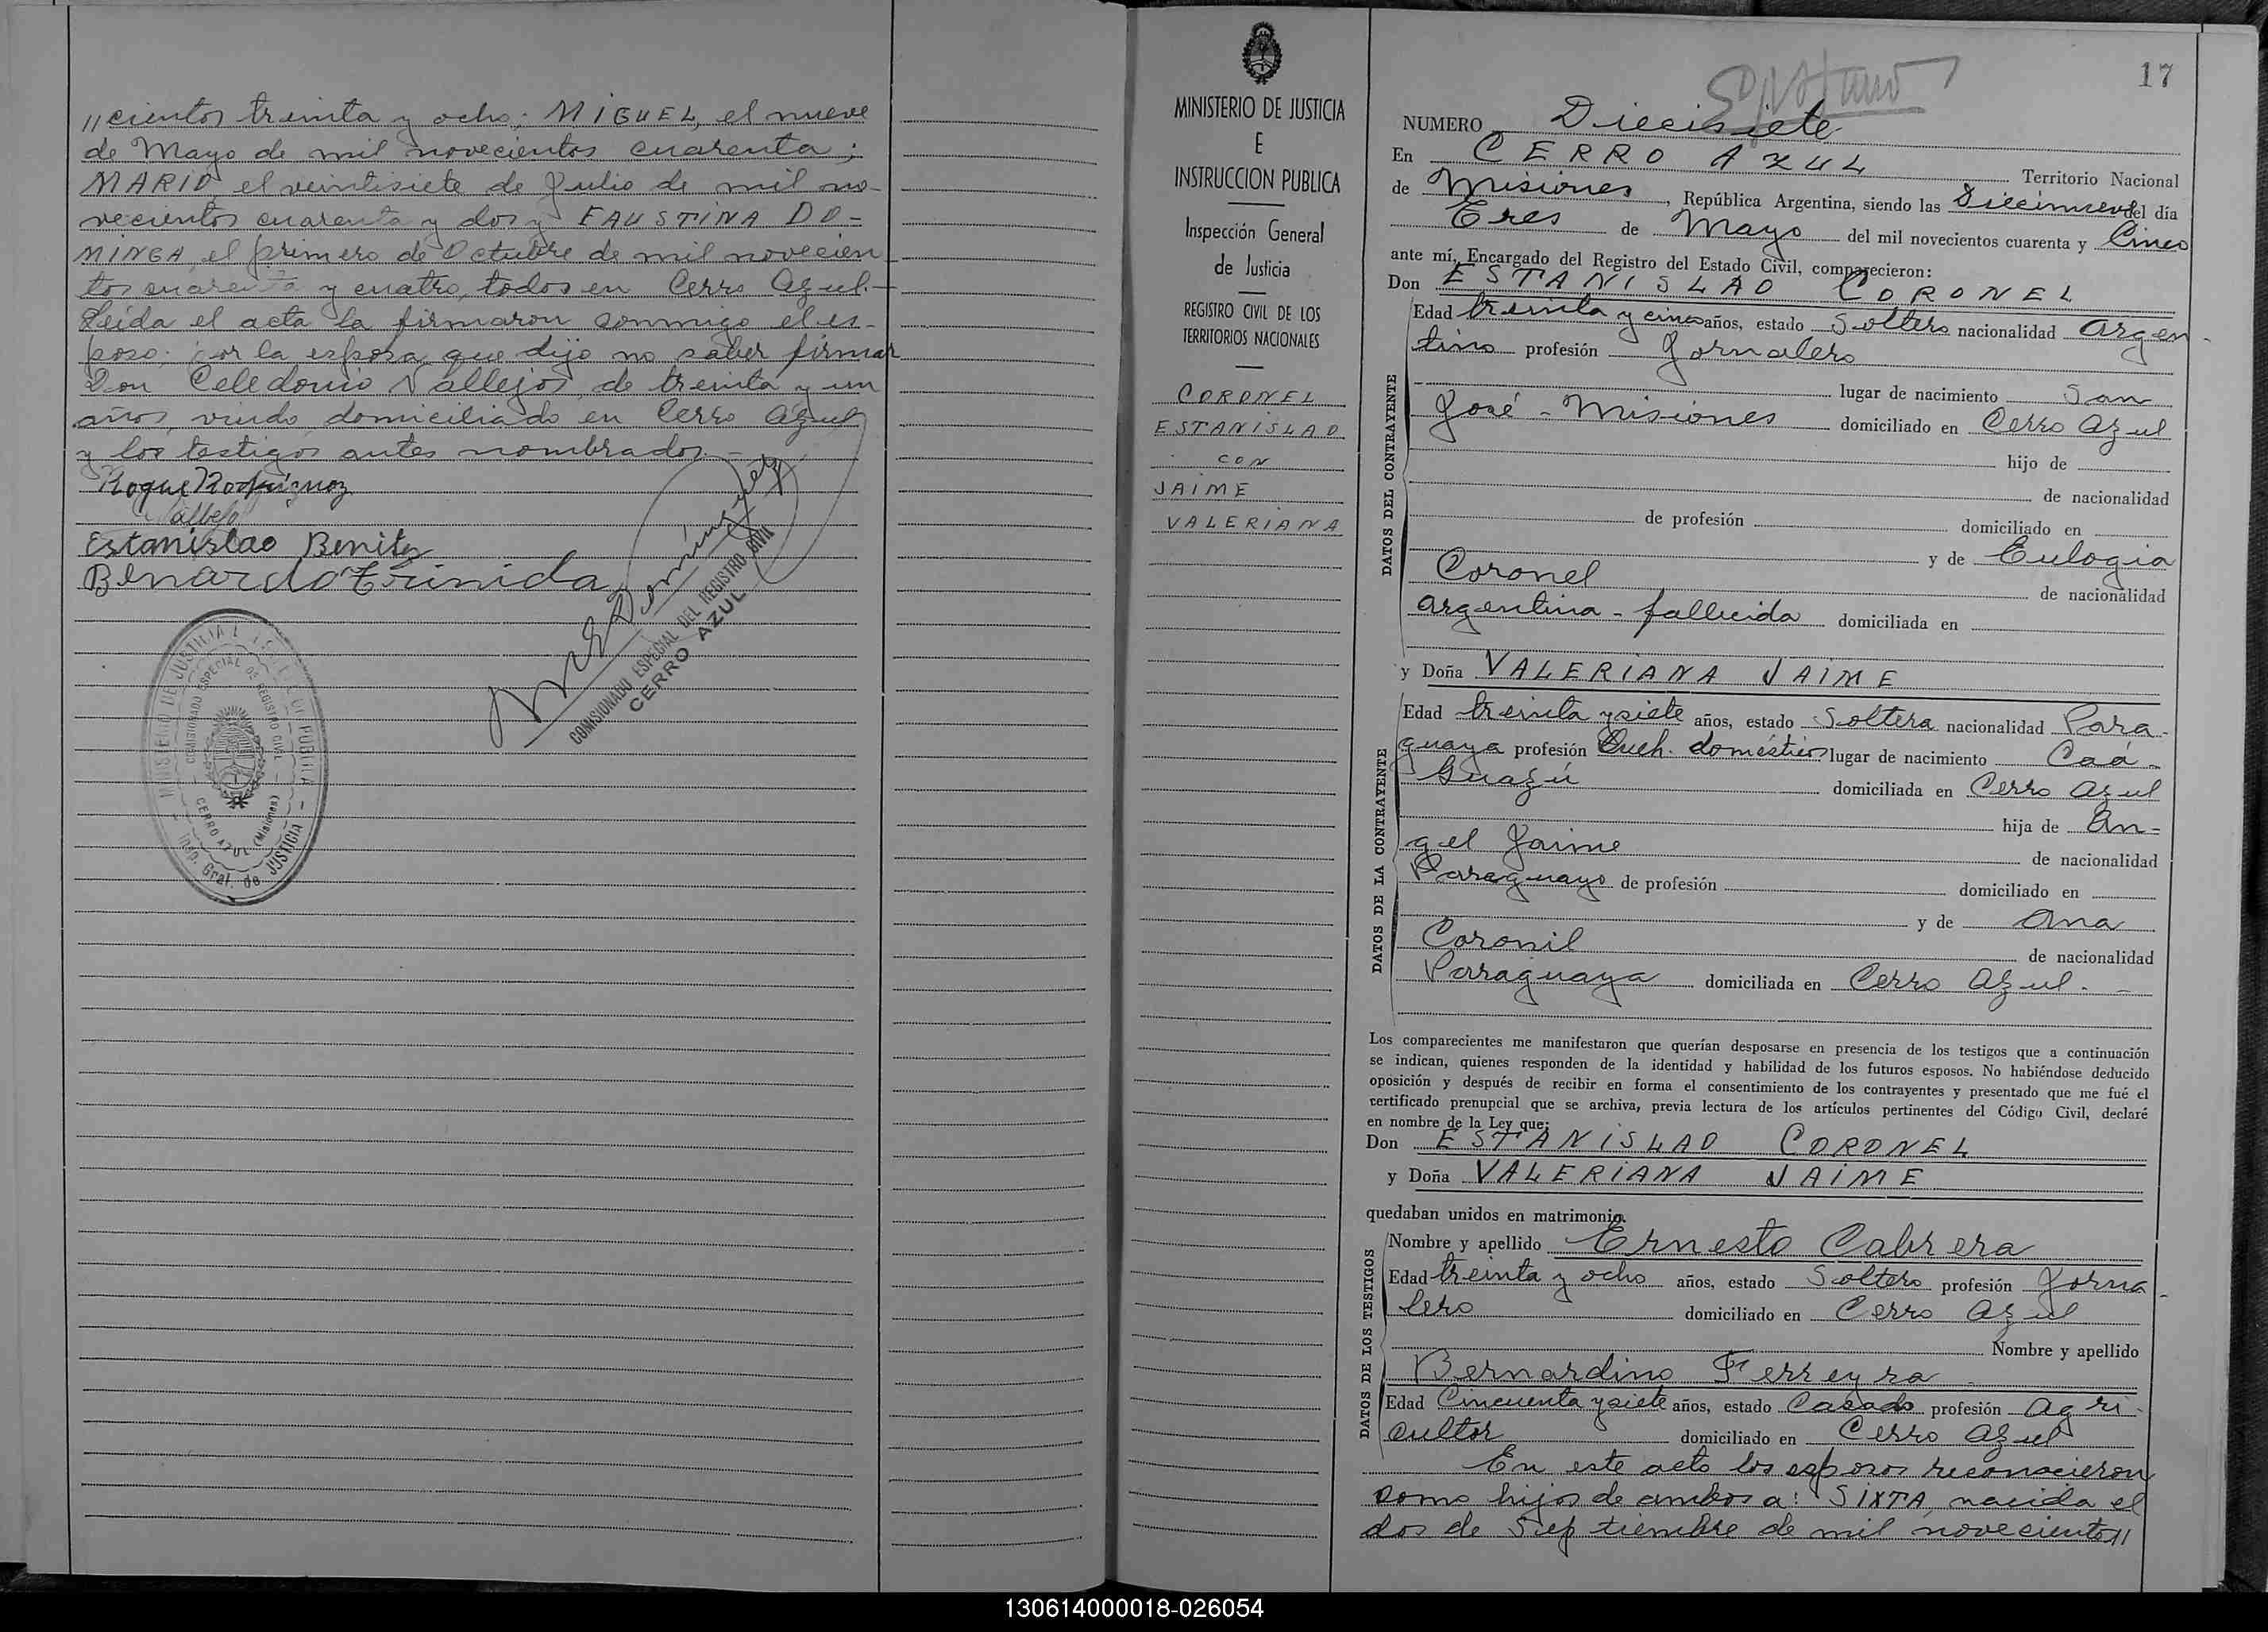 //cientos treinta y ocho; MIGUEL, el nueve
de Mayo de mil novecientos cuarenta;
MARIO el veintisiete de Julio de mil no-
vecientos cuarenta y dos y FAUSTINA DO=
MINGA, el primero de Octubre de mil novecien
tos cuarenta y cuatro, todos en Cerro Azul.-
Leida el acta la firmaron conmigo el es-
poso; por la esposa que dijo no saber firmar
Don Celedonio Vallejos, de treinta y un
años, viudo, domiciliado en Cerro Azul
y los testigos antes nombrados.-
Roque Rodriguez
Estanislao Benitez
Benardo Trinida
COMISIONADO ESPECIAL DEL REGISTRO CIVIL
CERRO AZUL
MINISTERIO DE JUSTICIA E I. PUBLICA -
Insp. Gral. de JUSTICIA
COMISIONADO ESPECIAL DE REGISTRO CIVIL
CERRO AZUL (Misiones)
MINISTERIO DE JUSTICIA
E
INSTRUCCION PUBLICA
Inspección General
de Justicia
REGISTRO CIVIL DE LOS
TERRITORIOS NACIONALES
CORONEL
ESTANISLAO
CON
JAIME
VALERIANA
17
NUMERO Diecisiete
En CERRO AZUL Territorio Nacional
de Misiones, República Argentina, siendo las Diecinueve del día
Tres de Mayo del mil novecientos cuarenta y Cinco
ante mí, Encargado del Registro del Estado Civil, comparecieron:
Don ESTANISLAO CORONEL
DATOS DEL CONTRAYENTE
Edad treinta y cinco años, estado Soltero nacionalidad Argen-
tino profesión Jornalero
lugar de nacimiento San
José - Misiones domiciliado en Cerro Azul
hijo de
de nacionalidad
de profesión domiciliado en
y de Eulogia
Coronel de nacionalidad
argentina - fallecida domiciliada en
y Doña VALERIANA JAIME
DATOS DE LA CONTRAYENTE
Edad treinta y siete años, estado Soltera nacionalidad Para-
guaya profesión Queh. domésticos lugar de nacimiento Caá-
Guazú domiciliada en Cerro Azul
hija de An=
gel Jaime de nacionalidad
Paraguayo de profesión domiciliado en
y de Ana
Coronil de nacionalidad
Paraguaya domiciliada en Cerro Azul. -
Los comparecientes me manifestaron que querían desposarse en presencia de los testigos que a continuación
se indican, quienes responden de la identidad y habilidad de los futuros esposos. No habiéndose deducido
oposición y después de recibir en forma el consentimiento de los contrayentes y presentado que me fué el
certificado prenupcial que se archiva, previa lectura de los artículos pertinentes del Código Civil, declaré
en nombre de la Ley que:
Don ESTANISLAO CORONEL
y Doña VALERIANA JAIME
quedaban unidos en matrimonio.
DATOS DE LOS TESTIGOS
Nombre y apellido Ernesto Cabrera
Edad treinta y ocho años, estado Soltero profesión Jorna-
lero domiciliado en Cerro Azul
Nombre y apellido
Bernardino Ferreyra
Edad Cincuenta y siete años, estado Casado profesión Agri-
cultor domiciliado en Cerro Azul
En este acto los esposos reconocieron
como hijos de ambos a: SIXTA nacida el
dos de Septiembre de mil novecientos//
130614000018-026054